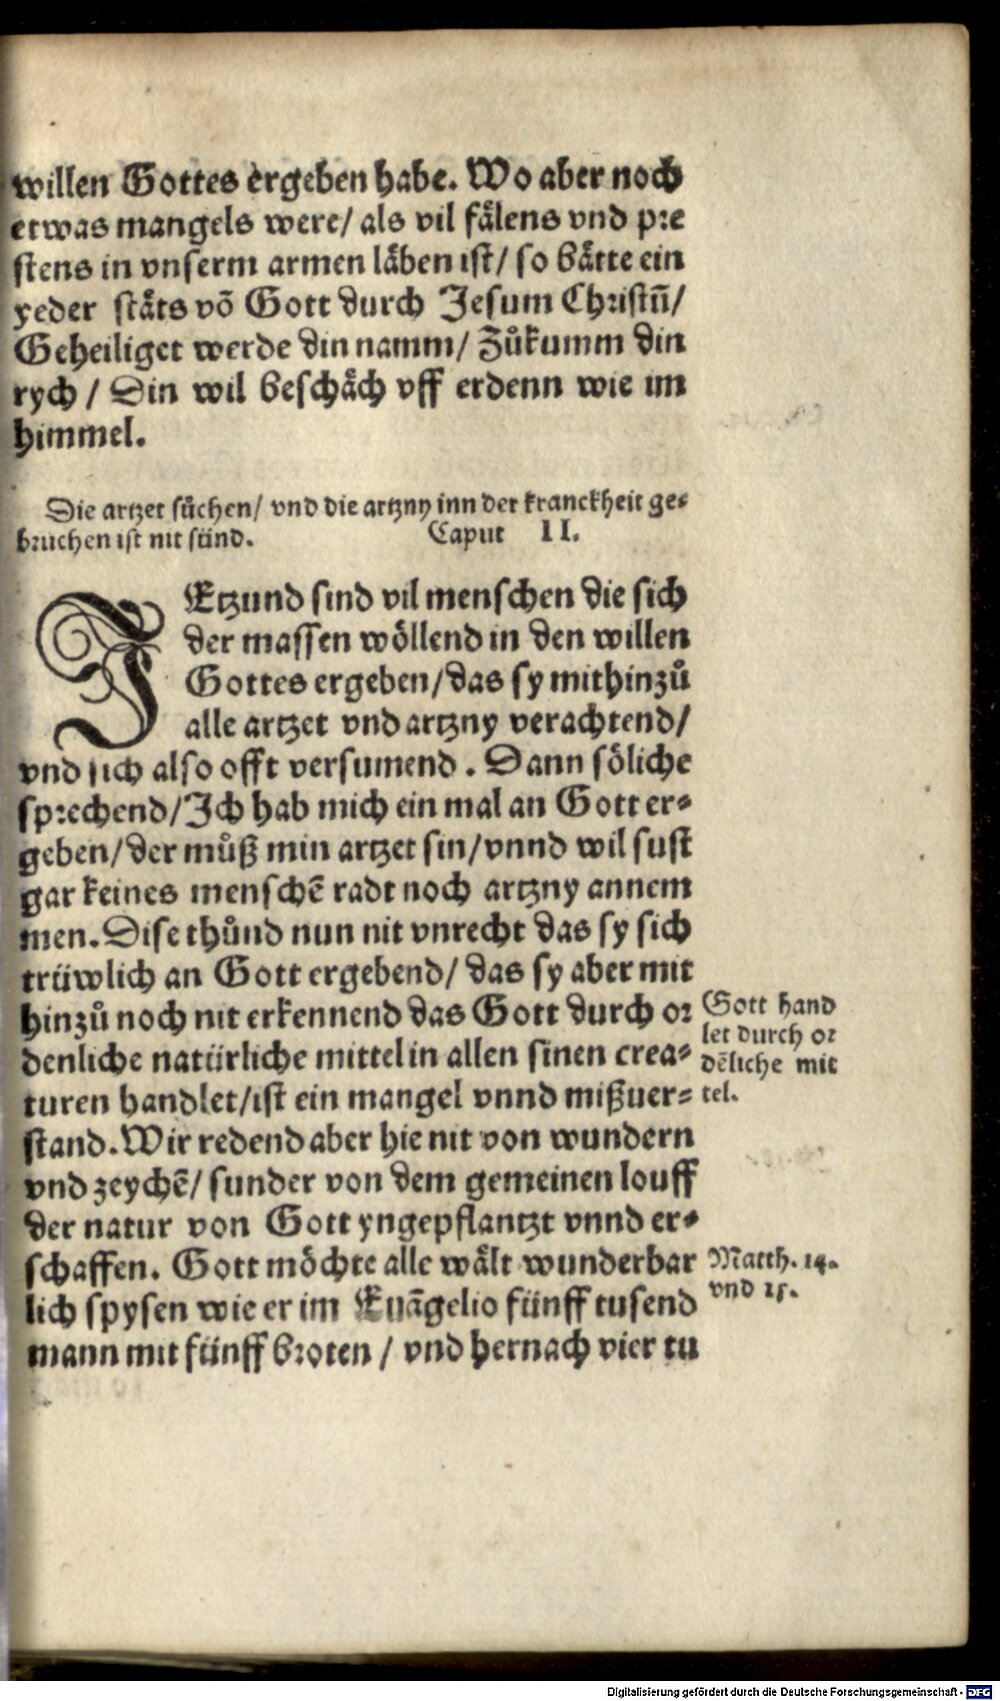 willen Gottes ergeben habe. Wo aber noch
etwas mangels were/ als vil fälens vnd pre
stens in vnserm armen läben ist/ so bätte ein
yeder stäts võ Gott durch Jesum Christũ/
Geheiliget werde din namm/ Zůkumm din
rych / Din wil beschäch vff erdenn wie im
himmel.
Die artzet sůchen/ vnd die artzny inn der kranckheit ge-
bruchen ist nit sünd. Caput II.
JEtzund sind vil menschen die sich
der massen wöllend in den willen
Gottes ergeben/ das sy mithinzů
alle artzet vnd artzny verachtend/
vnd sich also offt versumend. Dann söliche
sprechend/ Ich hab mich ein mal an Gott er-
geben/ der můß min artzet sin/ vnnd wil sust
gar keines menschẽ radt noch artzny annem
men. Dise thůnd nun nit vnrecht das sy sich
trüwlich an Gott ergebend/ das sy aber mit
hinzů noch nit erkennend das Gott durch or
denliche natürliche mittel in allen sinen crea-
turen handlet/ ist ein mangel vnnd mißuer-
stand. Wir redend aber hie nit von wundern
vnd zeychẽ/ sunder von dem gemeinen louff
der natur von Gott yngepflantzt vnnd er-
schaffen. Gott möchte alle wält wunderbar
lich spysen wie er im Euãgelio fünff tusend
mann mit fünff broten / vnd hernach vier tu
Gott hand
let durch or
dẽliche mit
tel.
Matth. 14.
vnd 15.
Digitalisierung gefördert durch die Deutsche Forschungsgemeinschaft - DFG